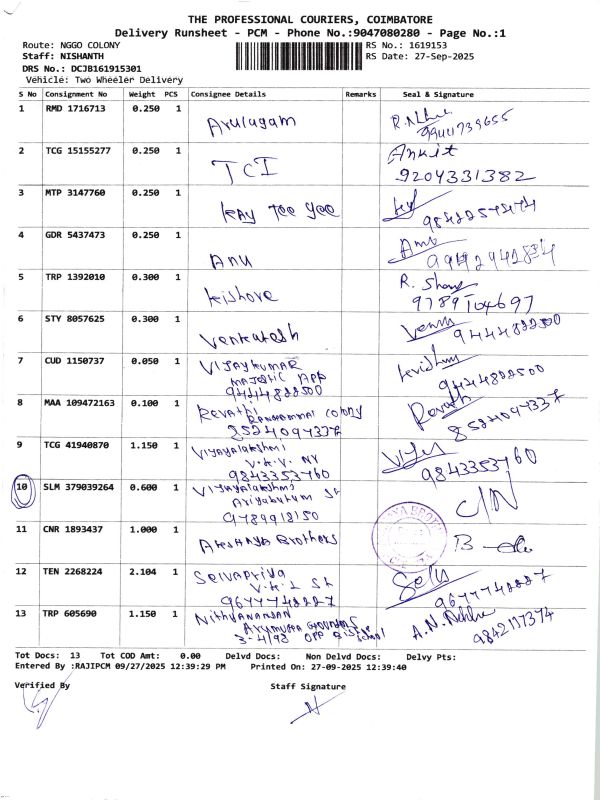 THE PROFESSIONAL COURIERS, COIMBATORE
Delivery Runsheet - PCM - Phone No.:9047080280 - Page No.:1
Route: NGGO COLONY RS No.: 1619153
Staff: NISHANTH RS Date: 27-Sep-2025
DRS No.: DCJB161915301
Vehicle: Two Wheeler Delivery
S No Consignment No Weight PCS Consignee Details Remarks Seal & Signature
1 RMD 1716713 0.250 1 Arulagam
2 TCG 15155277 0.250 1 TCI Ankit
9204331382
3 MTP 3147760 0.250 1 KAY TEE YEE
4 GDR 5437473 0.250 1 Anu Anu
5 TRP 1392010 0.300 1 Kishore R.
9789104697
6 STY 8057625 0.300 1 Venkatesh 9444822500
7 CUD 1150737 0.050 1 VIJAYKUMAR
MAJESTIC APP
9444822500 9444822500
8 MAA 109472163 0.100 1 Revathi Colony
8524097337 Revathi 8524097337
9 TCG 41940870 1.150 1 Vijayalakshmi
V.K.V. NY
9843353760 9843353760
10 SLM 379039264 0.600 1 Vijayalakshmi
St
9789918150 C/N
11 CNR 1893437 1.000 1 Brothers
12 TEN 2268224 2.104 1 Selvapriya
V.K.L St
9677748887 Selv 9677748887
13 TRP 605690 1.150 1 Nithyanandan
3-4/98 OPP A.N.
Tot Docs: 13 Tot COD Amt: 0.00 Delvd Docs: Non Delvd Docs: Delvy Pts:
Entered By :RAJIPCM 09/27/2025 12:39:29 PM Printed On: 27-09-2025 12:39:40
Verified By Staff Signature